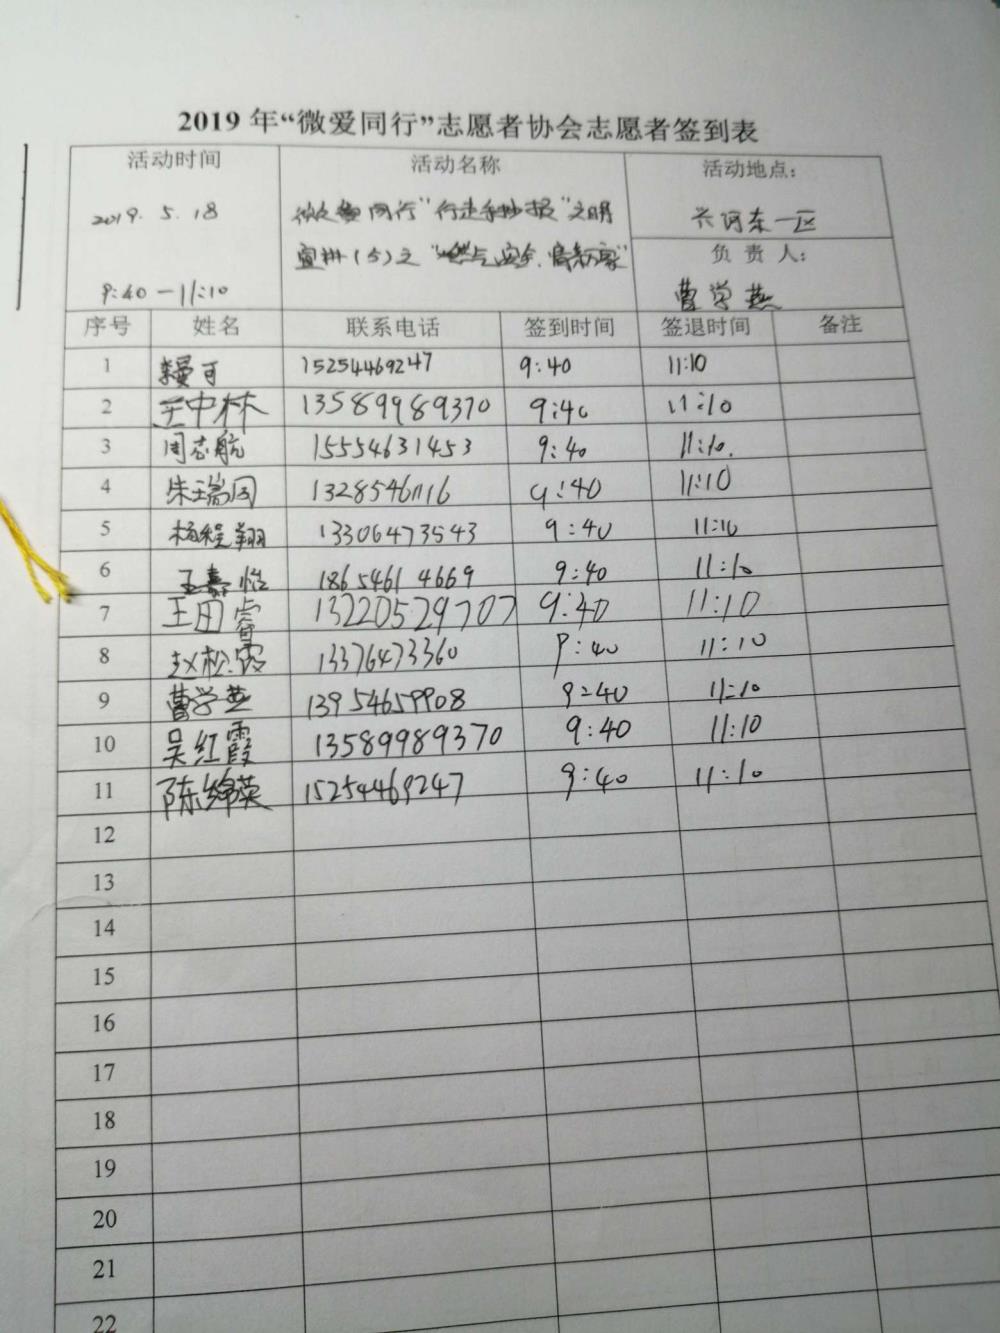 2019 年“微爱同行”志愿者协会志愿者签到表
活动时间 活动名称 活动地点：
2019. 5. 18 同行“行走手抄报”文明 兴河东一区
宣讲（5）之“燃气安全， 负 责 人：
9:40 — 11:10 曹学燕
序号 姓名 联系电话 签到时间 签退时间 备注
1 可 15254469247 9:40 11:10
2 王中林 13589989370 9:40 11:10
3 周志航 15554631453 9:40 11:10.
4 朱瑞 13285461116 9:40 11:10
5 杨程翔 13306473543 9:40 11:10
6 王嘉怡 18654614669 9:40 11:10
7 王田睿 13220529707 9:40 11:10
8 赵松霞 13376473360 9:40 11:10
9 曹学燕 13954659908 9:40 11:10
10 吴红霞 13589989370 9:40 11:10
11 陈绵英 15254469247 9:40 11:10
12
13
14
15
16
17
18
19
20
21
22